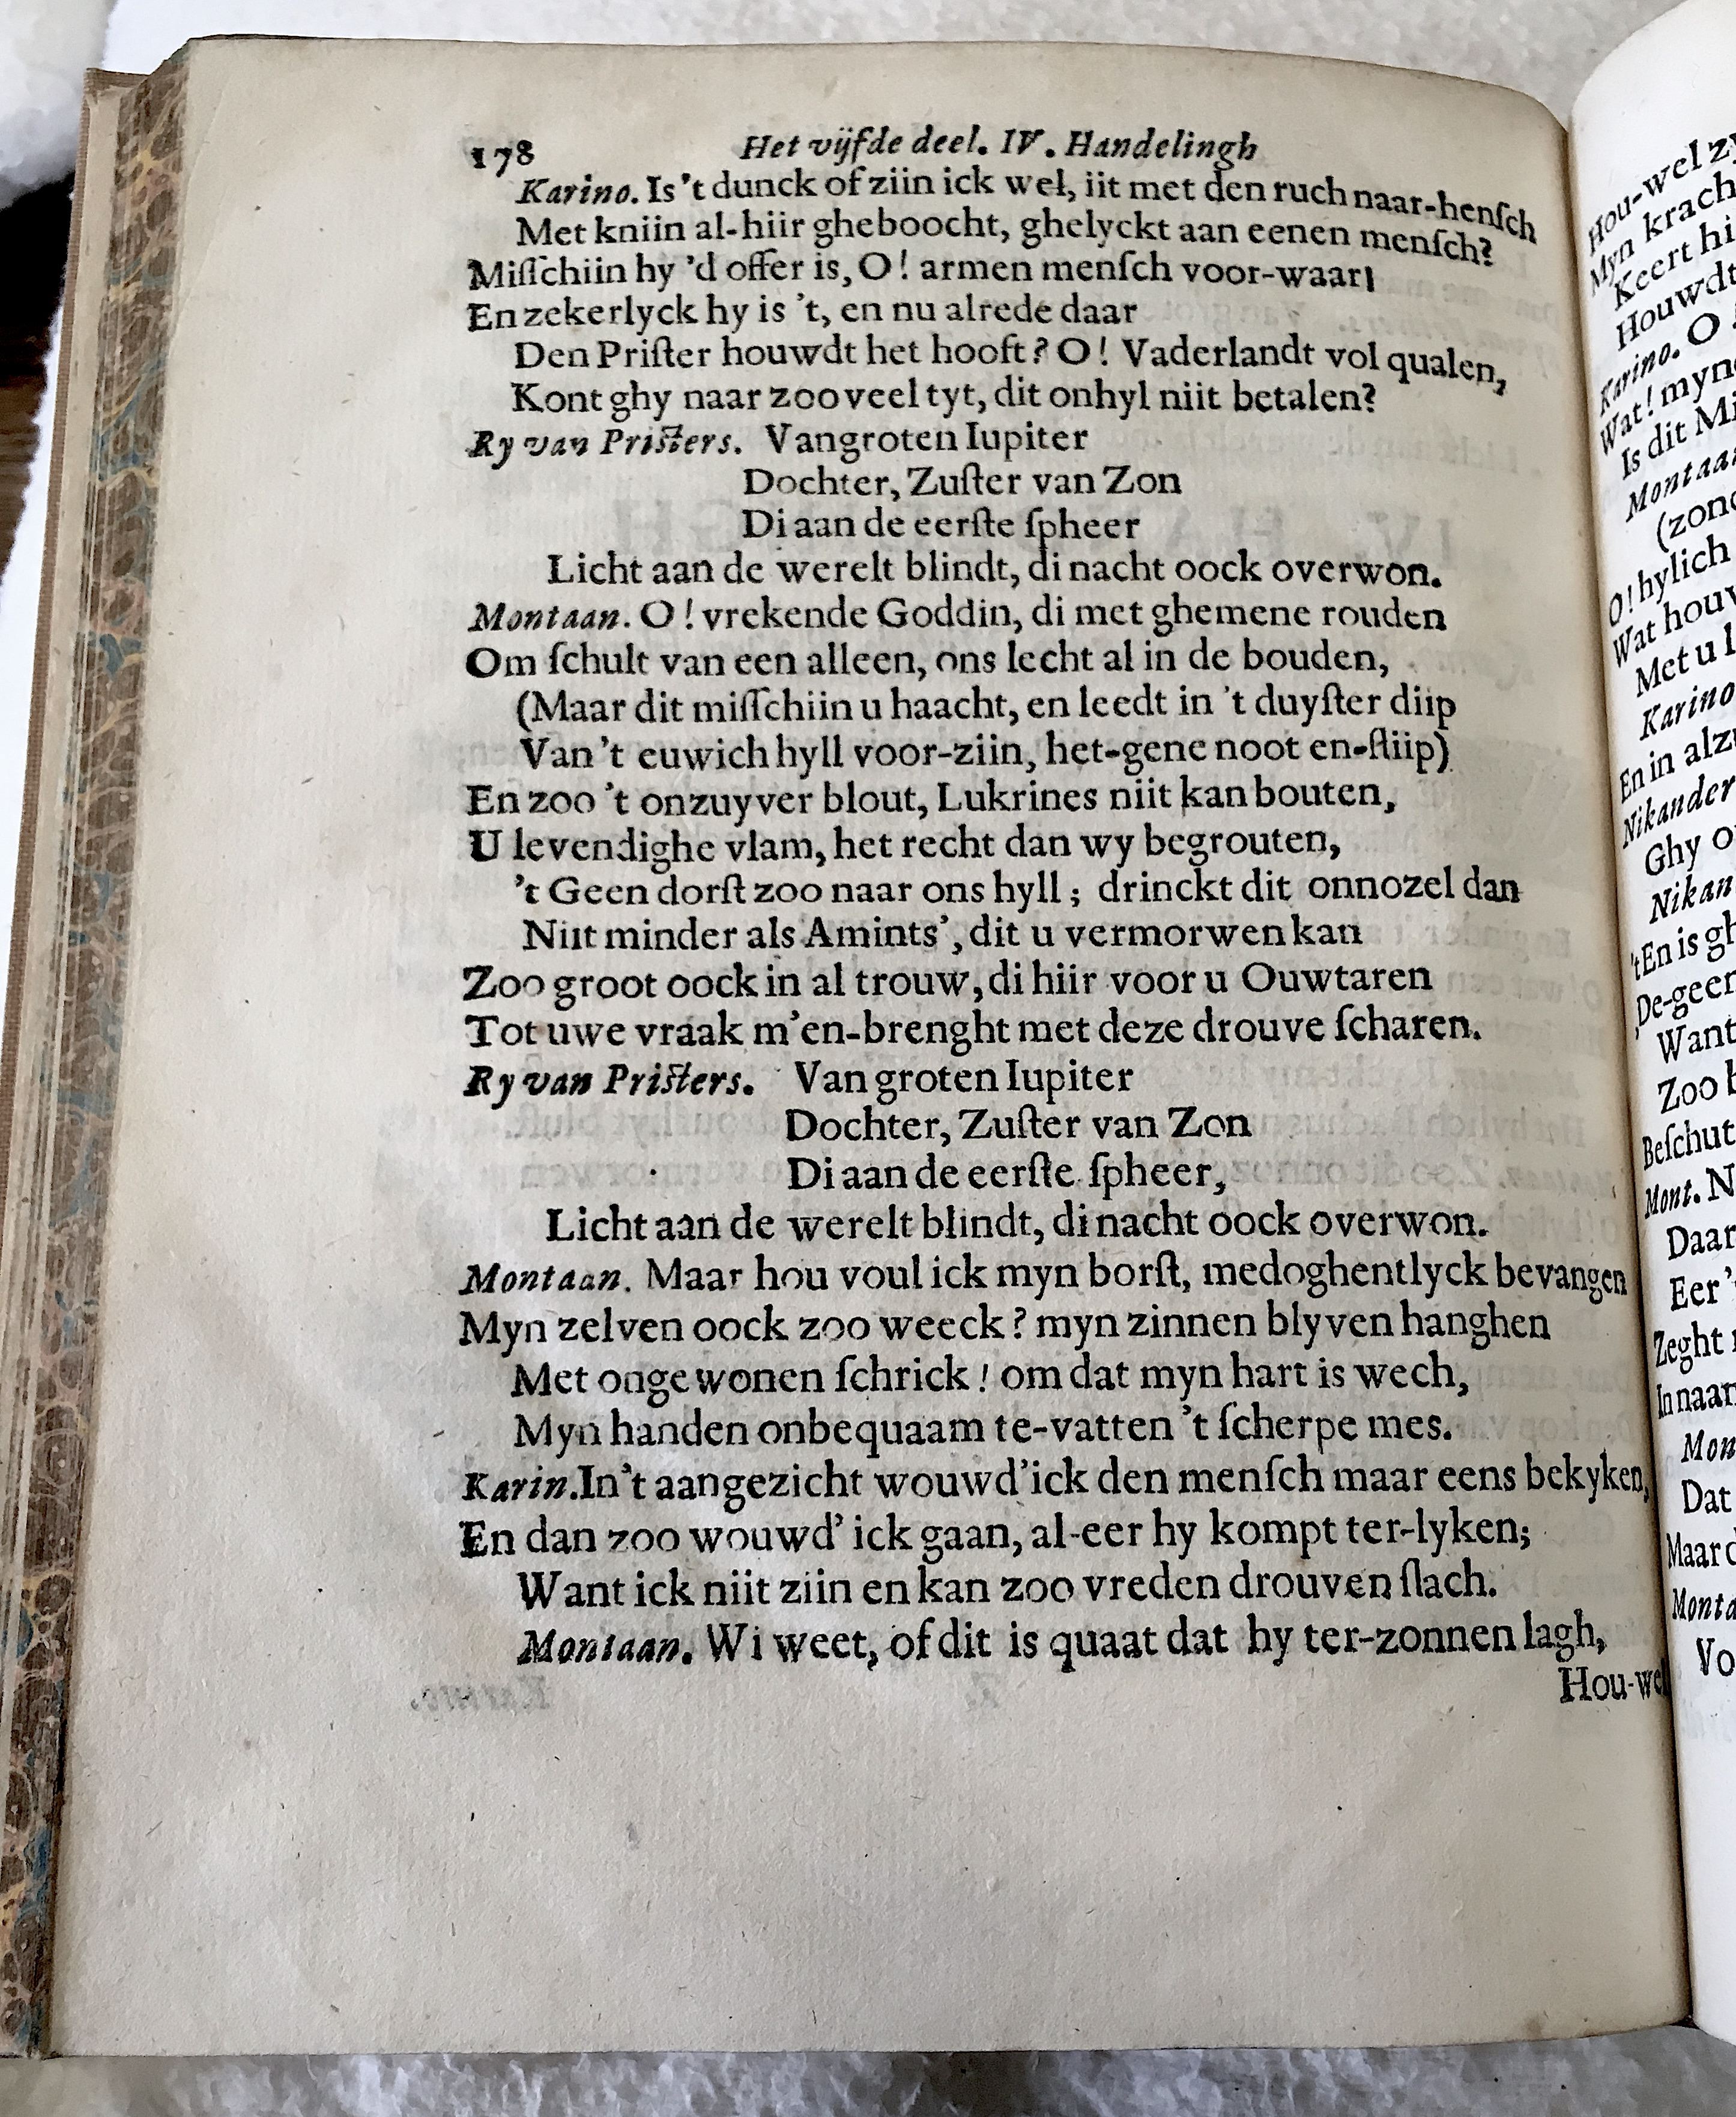 178 Het vijfde deel. IV. Handelingh
Karino. Is 't dunck of ziin ick wel, iit met den ruch naar-henſch
Met kniin al-hiir gheboocht, ghelyckt aan eenen menſch?
Miſſchiin hy 'd offer is, O! armen menſch voor-waar!
En zekerlyck hy is 't, en nu alrede daar
Den Priſter houwdt het hooft? O! Vaderlandt vol qualen,
Kont ghy naar zoo veel tyt, dit onhyl niit betalen?
Ry van Priſters. Van groten Iupiter
Dochter, Zuſter van Zon
Di aan de eerſte ſpheer
Licht aan de werelt blindt, di nacht oock overwon.
Montaan. O! vrekende Goddin, di met ghemene rouden
Om ſchult van een alleen, ons lecht al in de bouden,
(Maar dit miſſchiin u haacht, en leedt in 't duyſter diip
Van 't euwich hyll voor-ziin, het-gene noot en-ſliip)
En zoo 't onzuyver blout, Lukrines niit kan bouten,
U levendighe vlam, het recht dan wy begrouten,
't Geen dorſt zoo naar ons hyll; drinckt dit onnozel dan
Niit minder als Amints', dit u vermorwen kan
Zoo groot oock in al trouw, di hiir voor u Ouwtaren
Tot uwe vraak m'en-brenght met deze drouve ſcharen.
Ry van Priſters. Van groten Iupiter
Dochter, Zuſter van Zon
Di aan de eerſte ſpheer,
Licht aan de werelt blindt, di nacht oock overwon.
Montaan. Maar hou voul ick myn borſt, medoghentlyck bevangen
Myn zelven oock zoo weeck? myn zinnen blyven hanghen
Met ongewonen ſchrick! om dat myn hart is wech,
Myn handen onbequaam te-vatten 't ſcherpe mes.
Karin. In't aangezicht wouwd'ick den menſch maar eens bekyken,
En dan zoo wouwd' ick gaan, al-eer hy kompt ter-lyken;
Want ick niit ziin en kan zoo vreden drouven ſlach.
Montaan. Wi weet, of dit is quaat dat hy ter-zonnen lagh,
Hou-wel
Hou-wel zy
Myn krach
Keert hi
Houwdt
Karino. O
Wat! myn
Is dit Mi
Montaa
(zon
O! hylich
Wat hou
Met u l
Karino
En in alz
Nikander
Ghy o
Nikan
't En is gh
De-geer
Want
Zoo
Beſchut
Mont. N
Daar
Eer '
Zeght
In naar
Mon
Dat
Maar
Monta
Vo